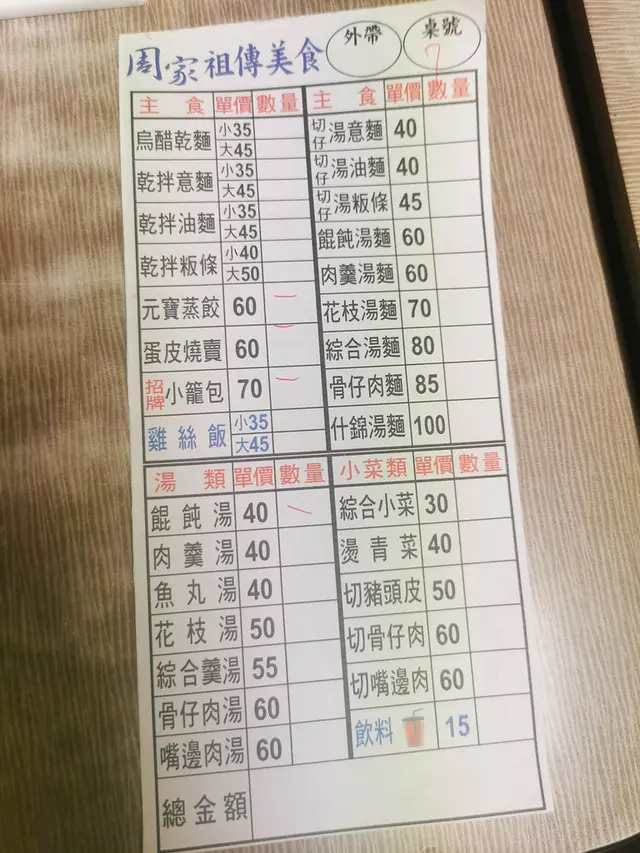 周家祖傳美食 外帶 桌號 7
主食 單價 數量 主食 單價 數量
烏醋乾麵 小35 大45
乾拌意麵 小35 大45
乾拌油麵 小35 大45
乾拌粄條 小40 大50
元寶蒸餃 60 一
蛋皮燒賣 60 一
招牌小籠包 70 一
雞絲飯 小35 大45
切仔湯意麵 40
切仔湯油麵 40
切仔湯粄條 45
餛飩湯麵 60
肉羹湯麵 60
花枝湯麵 70
綜合湯麵 80
骨仔肉麵 85
什錦湯麵 100
湯類 單價 數量
餛飩湯 40 一
肉羹湯 40
魚丸湯 40
花枝湯 50
綜合羹湯 55
骨仔肉湯 60
嘴邊肉湯 60
小菜類 單價 數量
綜合小菜 30
燙青菜 40
切豬頭皮 50
切骨仔肉 60
切嘴邊肉 60
飲料 15
總金額